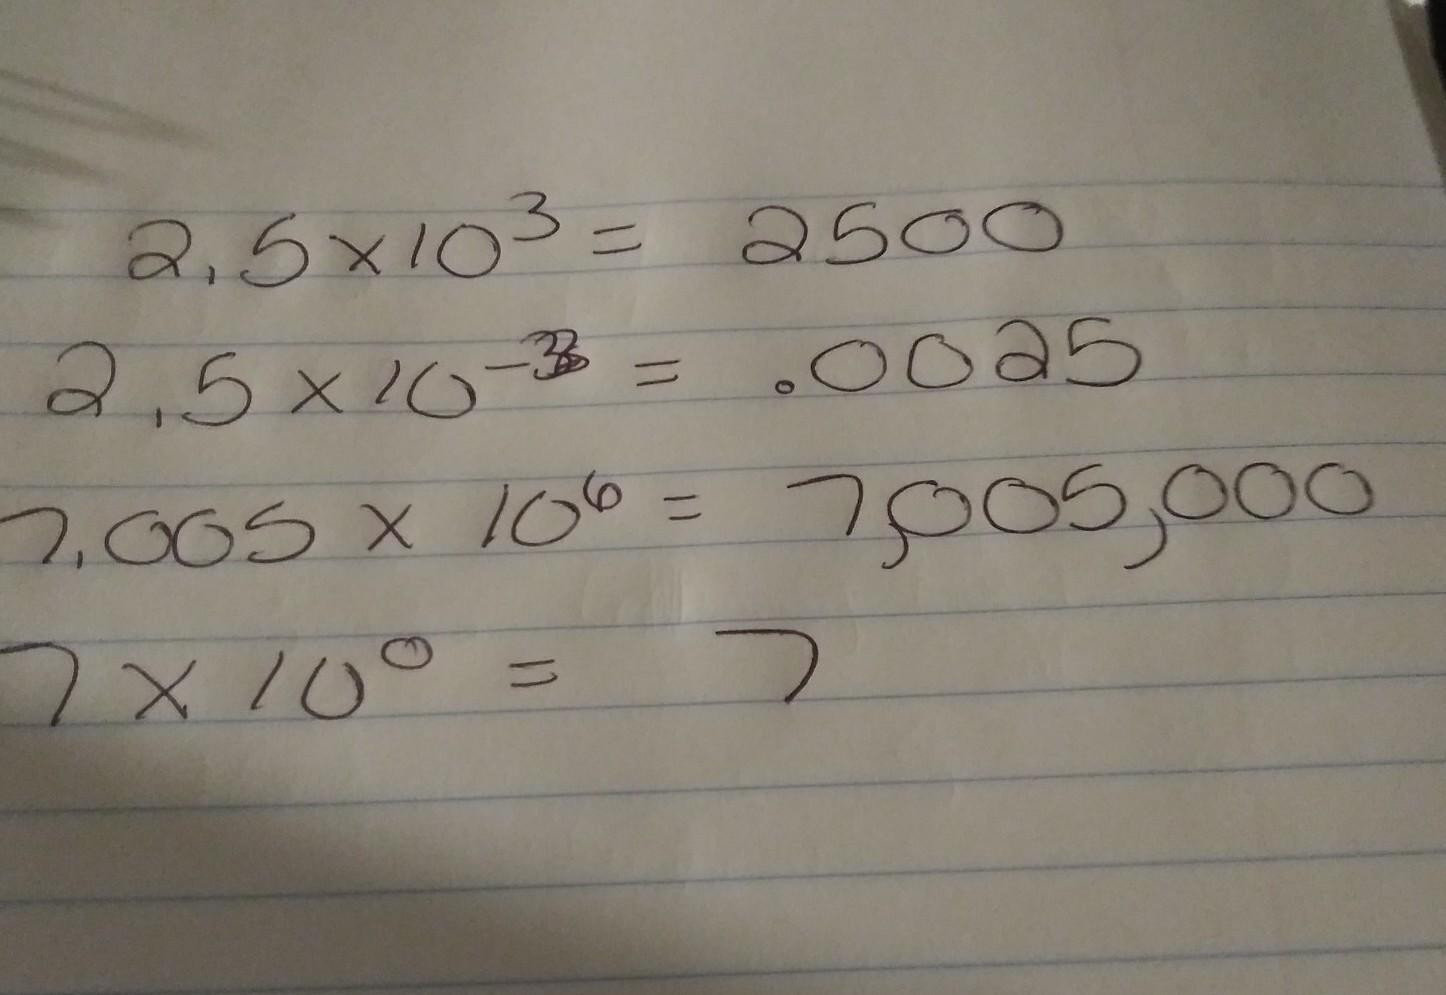 2.5 x 10³ = 2500
2.5 x 10⁻³ = .0025
7.005 x 10⁶ = 7,005,000
7 x 10⁰ = 7